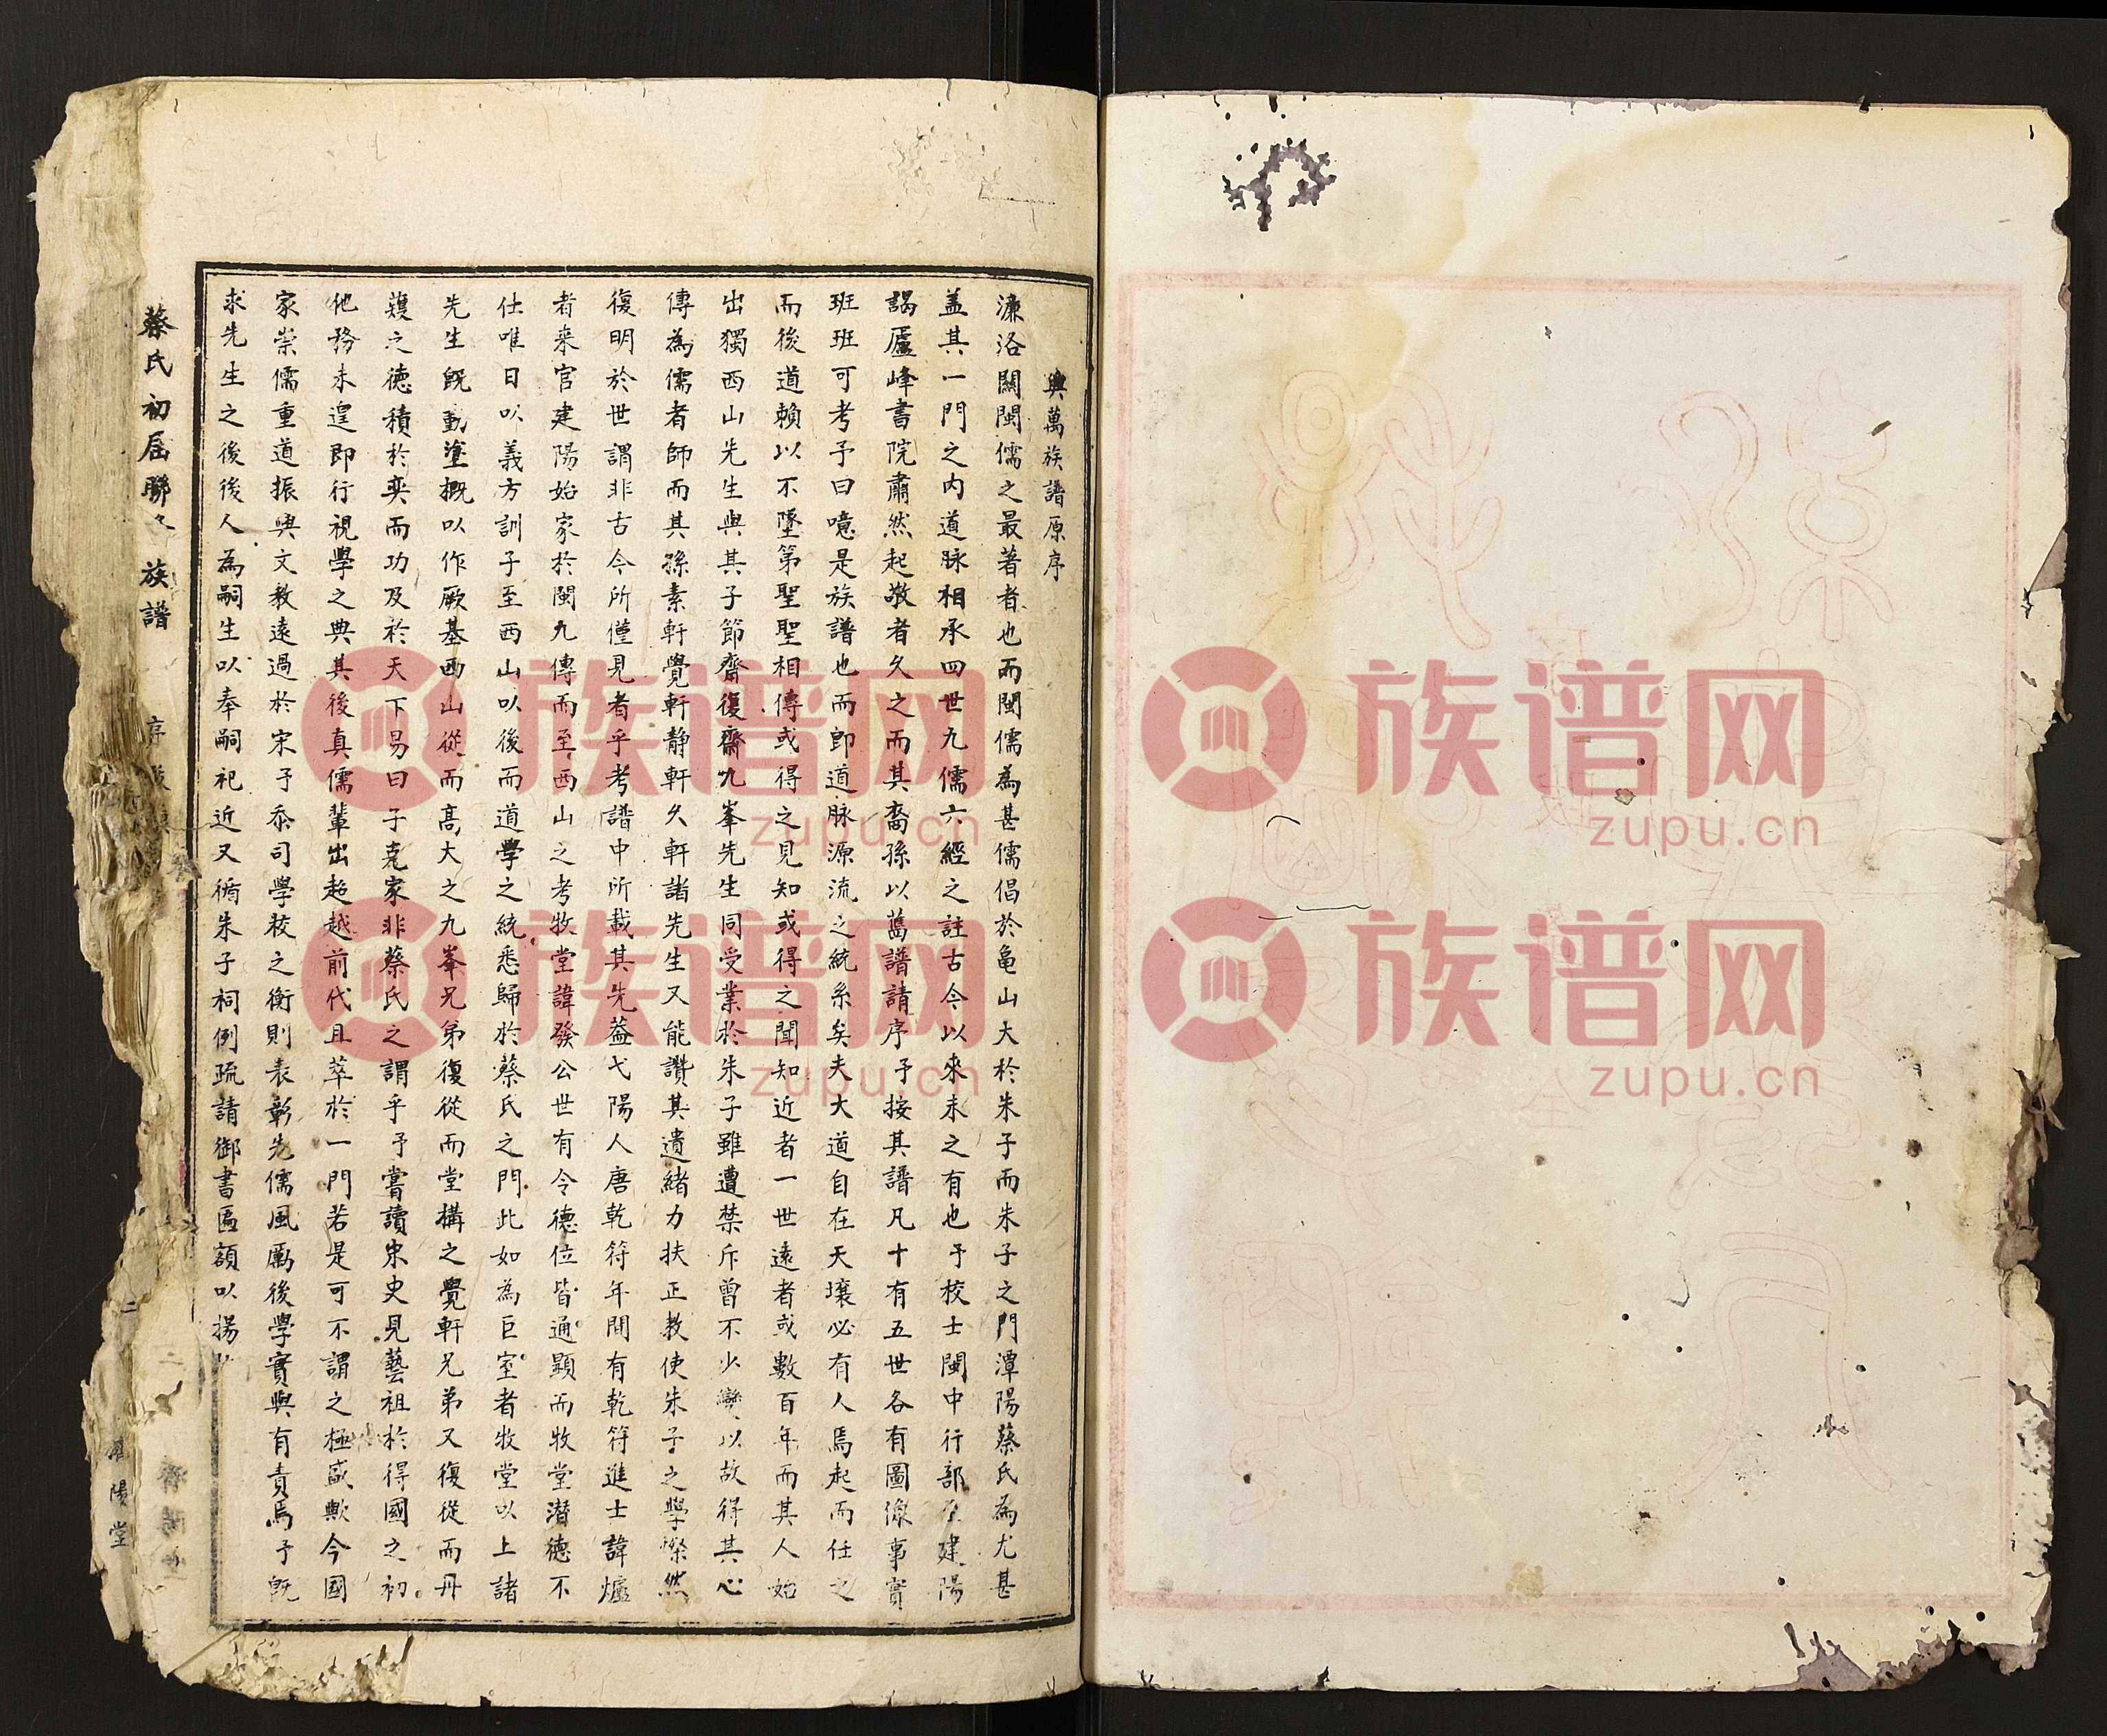 興萬族譜原序
濂洛關閩儒之最著者也而閩儒為甚儒倡於龜山大於朱子而朱子之門潭陽蔡氏為尤甚
盖其一門之內道脉相承四世九儒六經之註古今以來未之有也予校士閩中行部至建陽
謁廬峰書院肅然起敬者久之而其裔孫以舊譜請序予按其譜凡十有五世各有圖像事實
班班可考予曰噫是族譜也而即道脉源流之統系矣夫大道自在天壤必有人焉起而任之
而後道賴以不墜第聖聖相傳或得之見知或得之聞知近者一世遠者或數百年而其人始
出獨西山先生與其子節齋復齋九峯先生同受業於朱子雖遭禁斥曾不少變以故得其心
傳為儒者師而其孫素軒覺軒静軒久軒諸先生又能讚其遺緒力扶正教使朱子之學燦然
復明於世謂非古今所僅見者乎考譜中所載其先蓋弋陽人唐乾符年間有乾符進士諱爐
者來官建陽始家於閩九傳而至西山之考牧堂諱發公世有令德位皆通顯而牧堂潛德不
仕唯日以義方訓子至西山以後而道學之統悉歸於蔡氏之門此如為巨室者牧堂以上諸
先生既勤塗概以作厥基西山從而高大之九峯兄弟復從而堂構之覺軒兄弟又復從而丹
雘之德積於奕而功及於天下易曰子克家非蔡氏之謂乎予嘗讀宋史見藝祖於得國之初
他務未遑即行視學之典其後真儒輩出超越前代且萃於一門若是可不謂之極盛歟今國
家崇儒重道振興文教遠過於宋予忝司學校之衡則表彰先儒風厲後學實與有責焉予既
求先生之後後人為嗣生以奉嗣祀近又循朱子祠例疏請御書匾額以揚
蔡氏初屆聯 族譜
序
二
陽堂
族谱网
zupu.cn
族谱网
zupu.cn
族谱网
zupu.cn
族谱网
zupu.cn